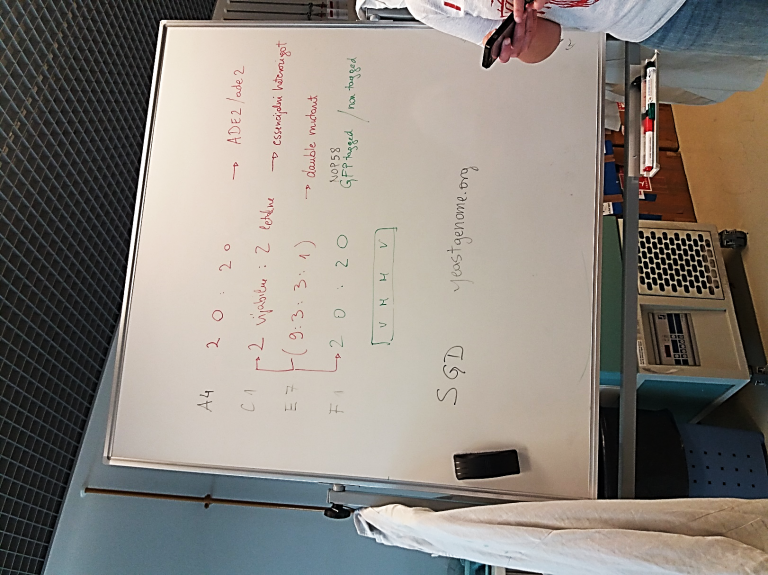 A4 2 0 : 2 0 → ADE2/ade2
C1 2 vijabilne : 2 letalne → esencijalni heterozigot
E7 (9:3:3:1) → double mutant
F1 2 0 : 2 0 NOP58
GFP tagged / non tagged
V M M V
SGD yeastgenome.org